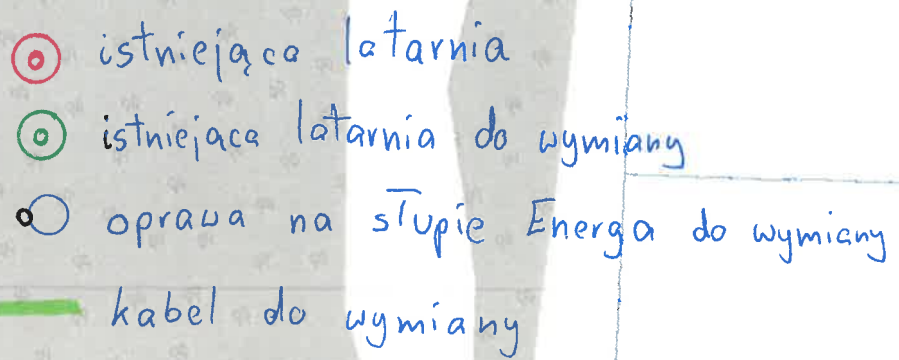 istniejąca latarnia
istniejąca latarnia do wymiany
oprawa na słupie Energa do wymiany
kabel do wymiany